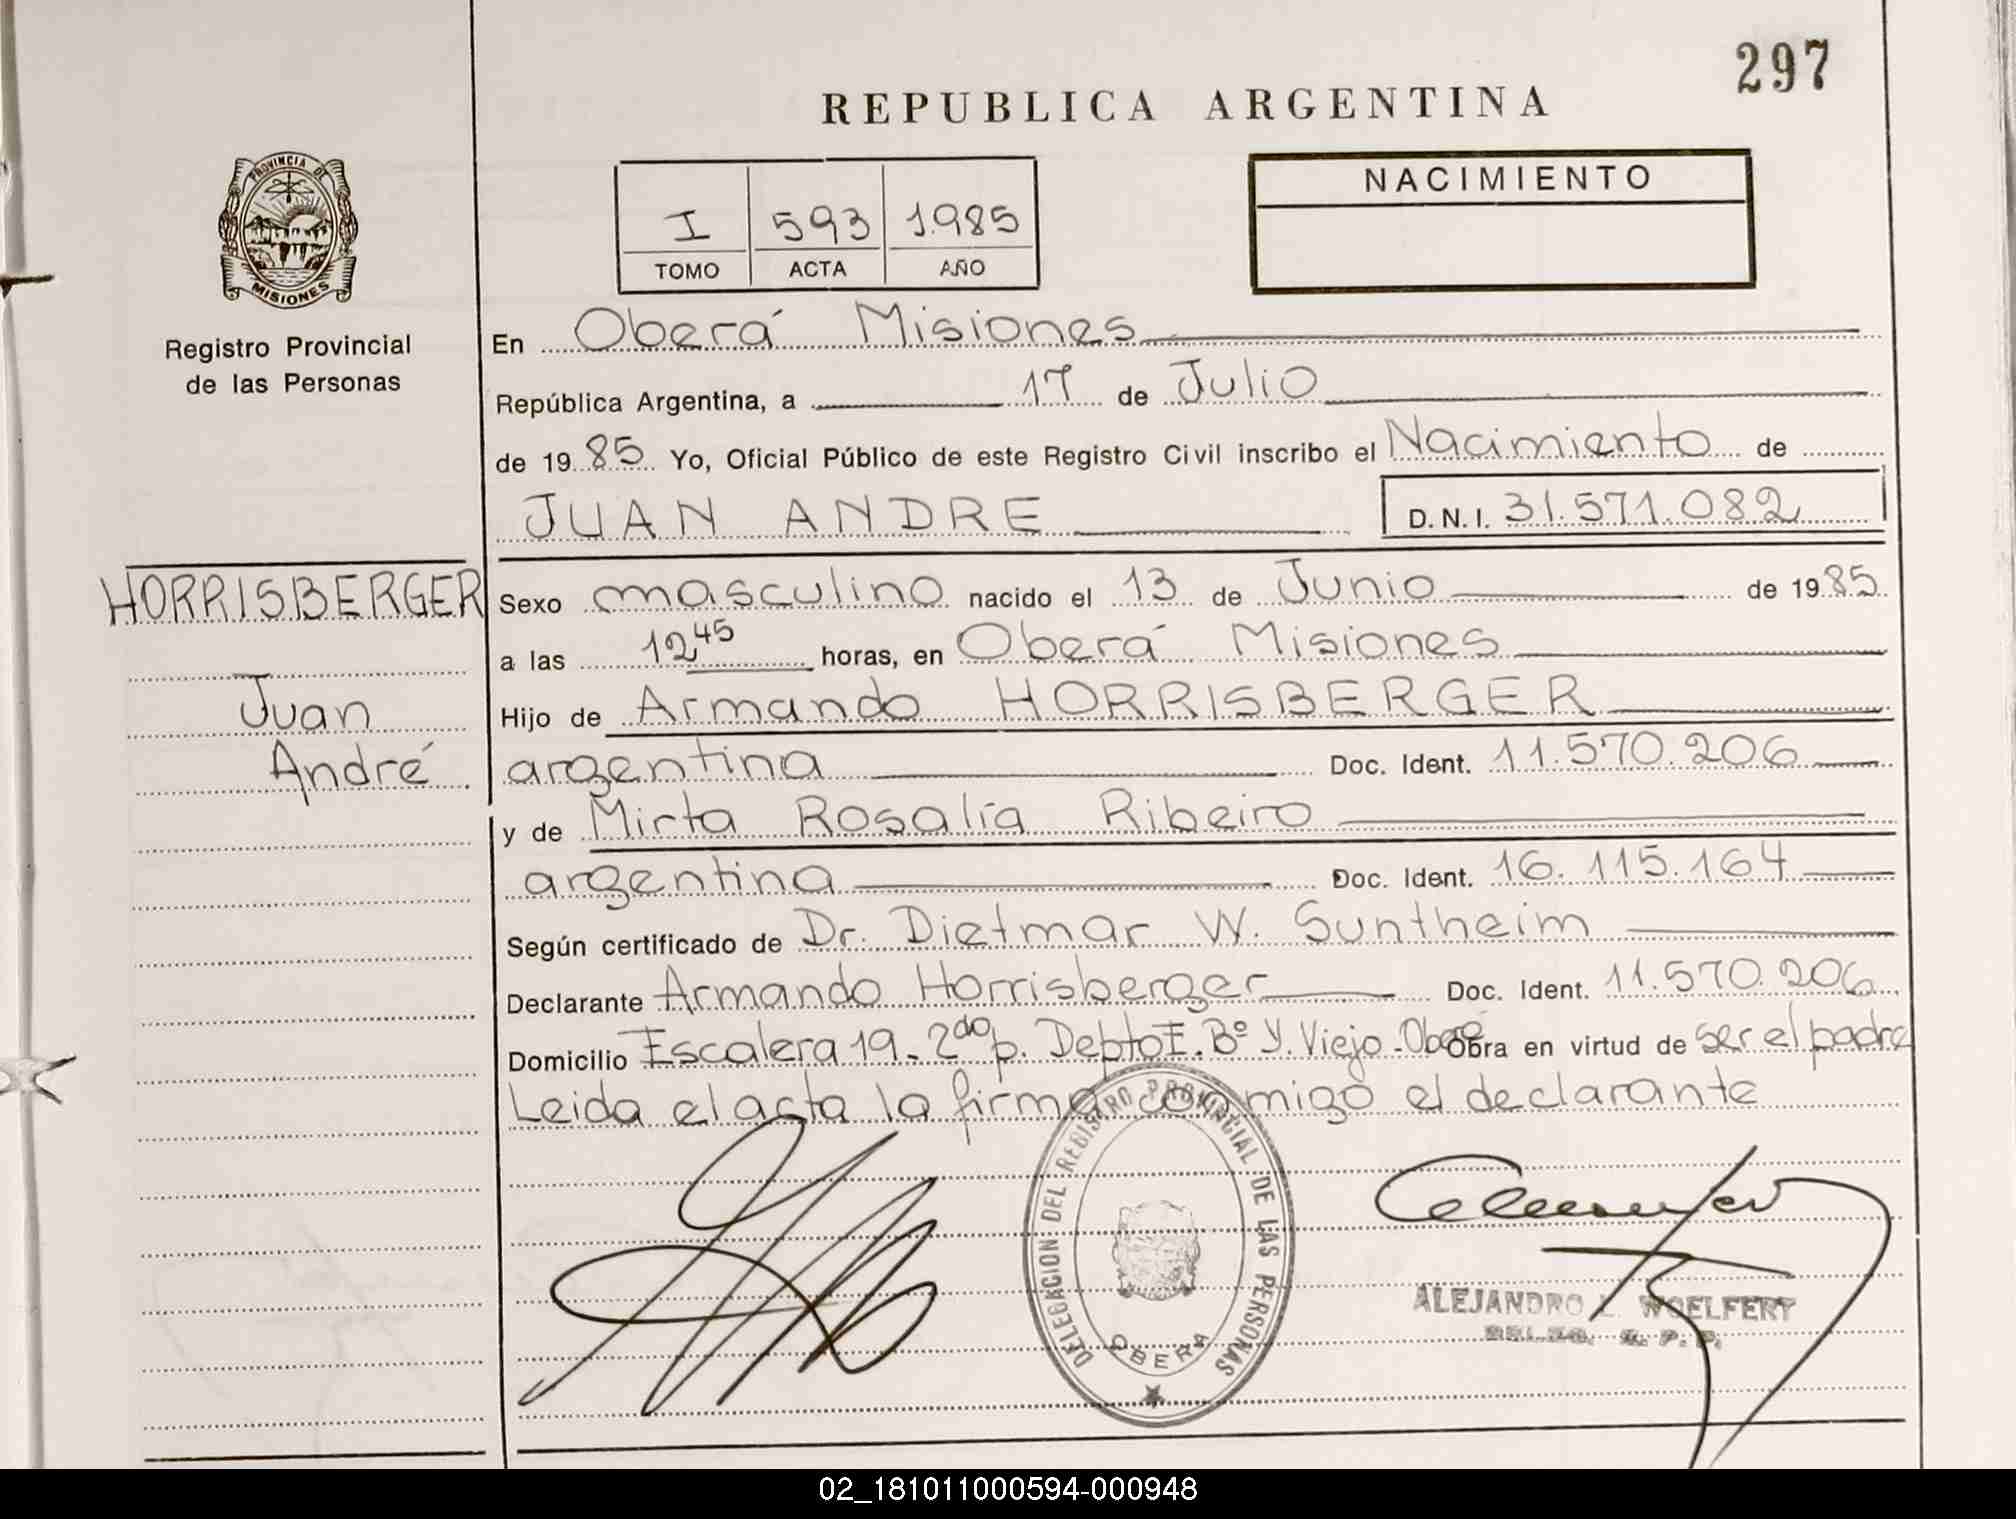 297
REPUBLICA ARGENTINA
PROVINCIA DE
MISIONES
Registro Provincial
de las Personas
I 593 1.985
TOMO ACTA AÑO
NACIMIENTO
En Oberá Misiones
República Argentina, a 17 de Julio
de 19 85 Yo, Oficial Público de este Registro Civil inscribo el Nacimiento de
JUAN ANDRE D.N.I. 31.571.082
HORRISBERGER
Juan
André
Sexo masculino nacido el 13 de Junio de 19 85
a las 12 45 horas, en Oberá Misiones
Hijo de Armando HORRISBERGER
argentina Doc. Ident. 11.570.206
y de Mirta Rosalía Ribeiro
argentina Doc. Ident. 16.115.164
Según certificado de Dr. Dietmar W. Suntheim
Declarante Armando Horrisberger Doc. Ident. 11.570.206
Domicilio Escalera 19 - 2do p. Depto E. Bº Y. Viejo - Oberá Obra en virtud de ser el padre
Leida el acta la firma conmigo el declarante
DELEGACION DEL REGISTRO PROVINCIAL DE LAS PERSONAS
OBERA
ALEJANDRO L. WOELFERT
02_181011000594-000948